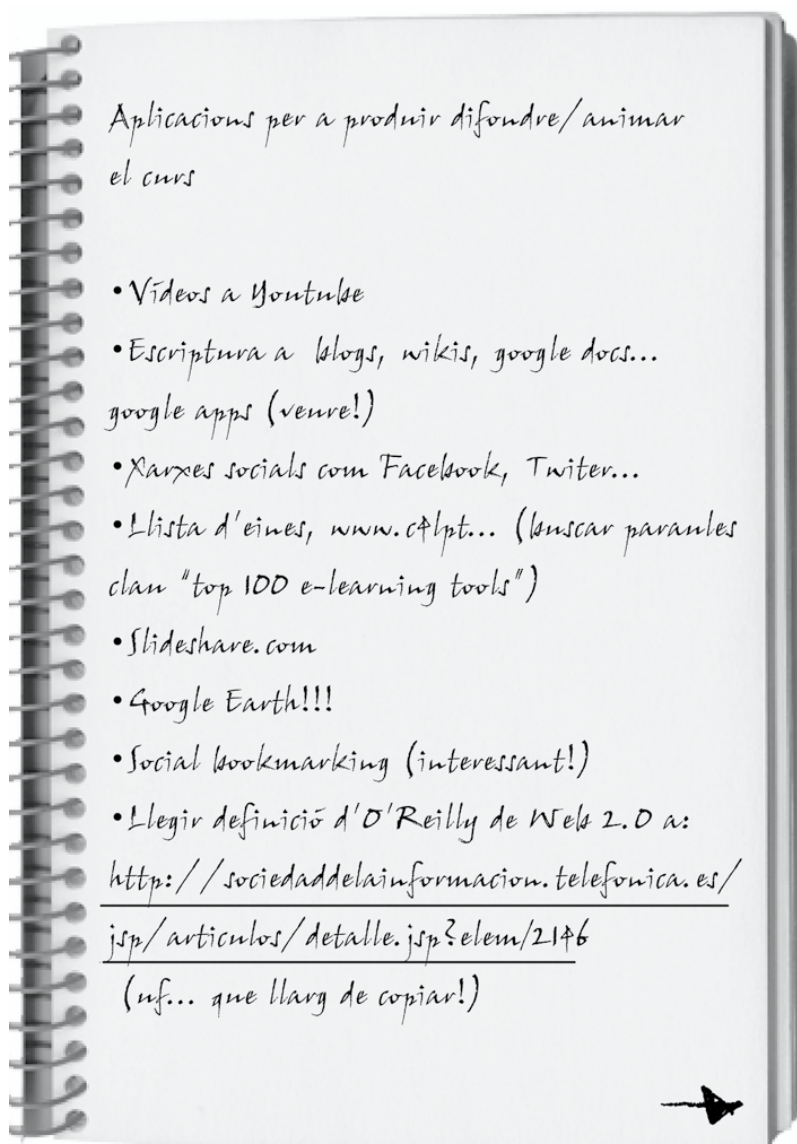 Aplicacions per a produir difondre/animar
el curs
•Vídeos a Youtube
•Escriptura a blogs, wikis, google docs...
google apps (veure!)
•Xarxes socials com Facebook, Twiter...
•Llista d'eines, www.c4lpt... (buscar paraules
clau "top 100 e-learning tools")
•Slideshare.com
•Google Earth!!!
•Social bookmarking (interessant!)
•Llegir definició d'O'Reilly de Web 2.0 a:
http://sociedaddelainformacion.telefonica.es/
jsp/articulos/detalle.jsp?elem/2146
(uf... que llarg de copiar!)